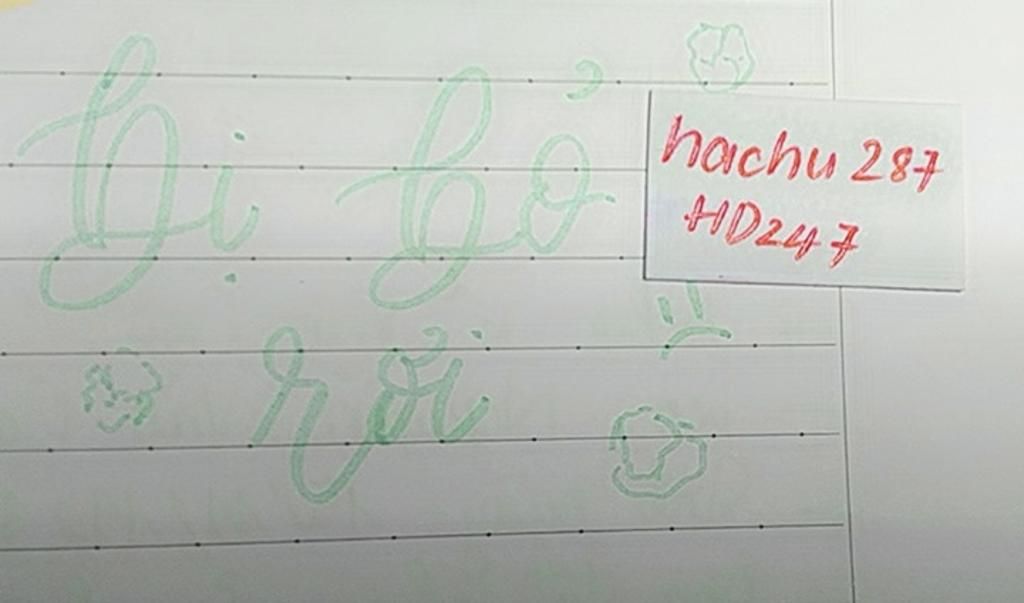 bị bỏ
hachu 287
HD247
rơi